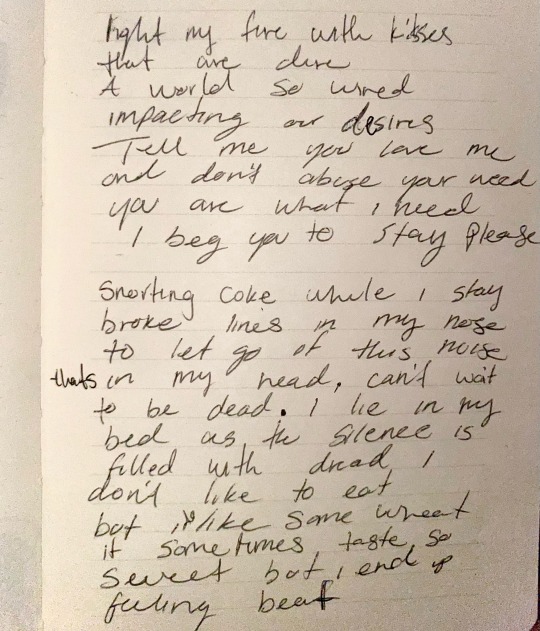 light my fire with kisses
that are dire
A world so wired
impacting our desires
Tell me you love me
and don't abuse your need
you are what i need
I beg you to stay please
Snorting coke while i stay
broke lines in my nose
to let go of this noise
thats in my head, can't wait
to be dead. I lie in my
bed as the silence is
filled with dread I
don't like to eat
but i like some wheat
it sometimes taste so
sweet but i end up
feeling beat